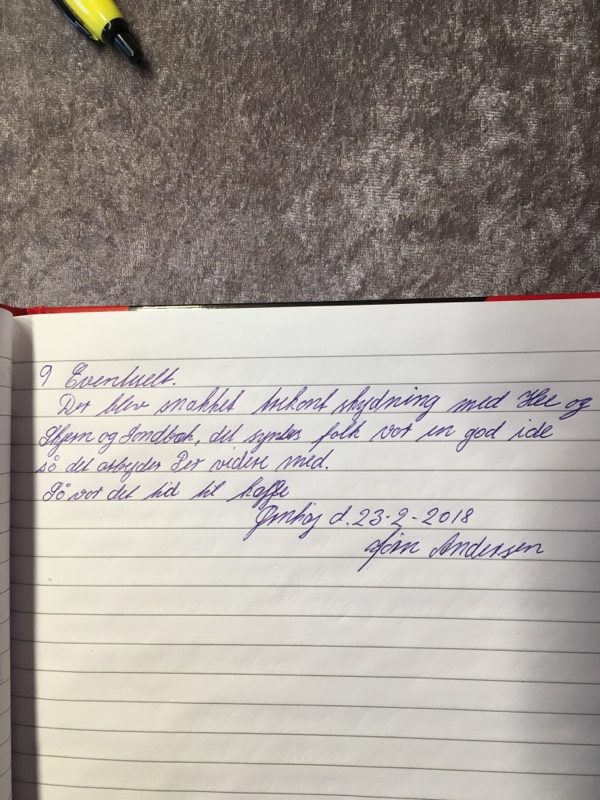 9 Eventuelt.
Der blev snakket trekant skydning med Hee og
Skjern og Sondbæk, det syntes folk var en god ide
så det arbejder Per videre med.
Så var det tid til kaffe
d. 23-2-2018
Jørn Andersen